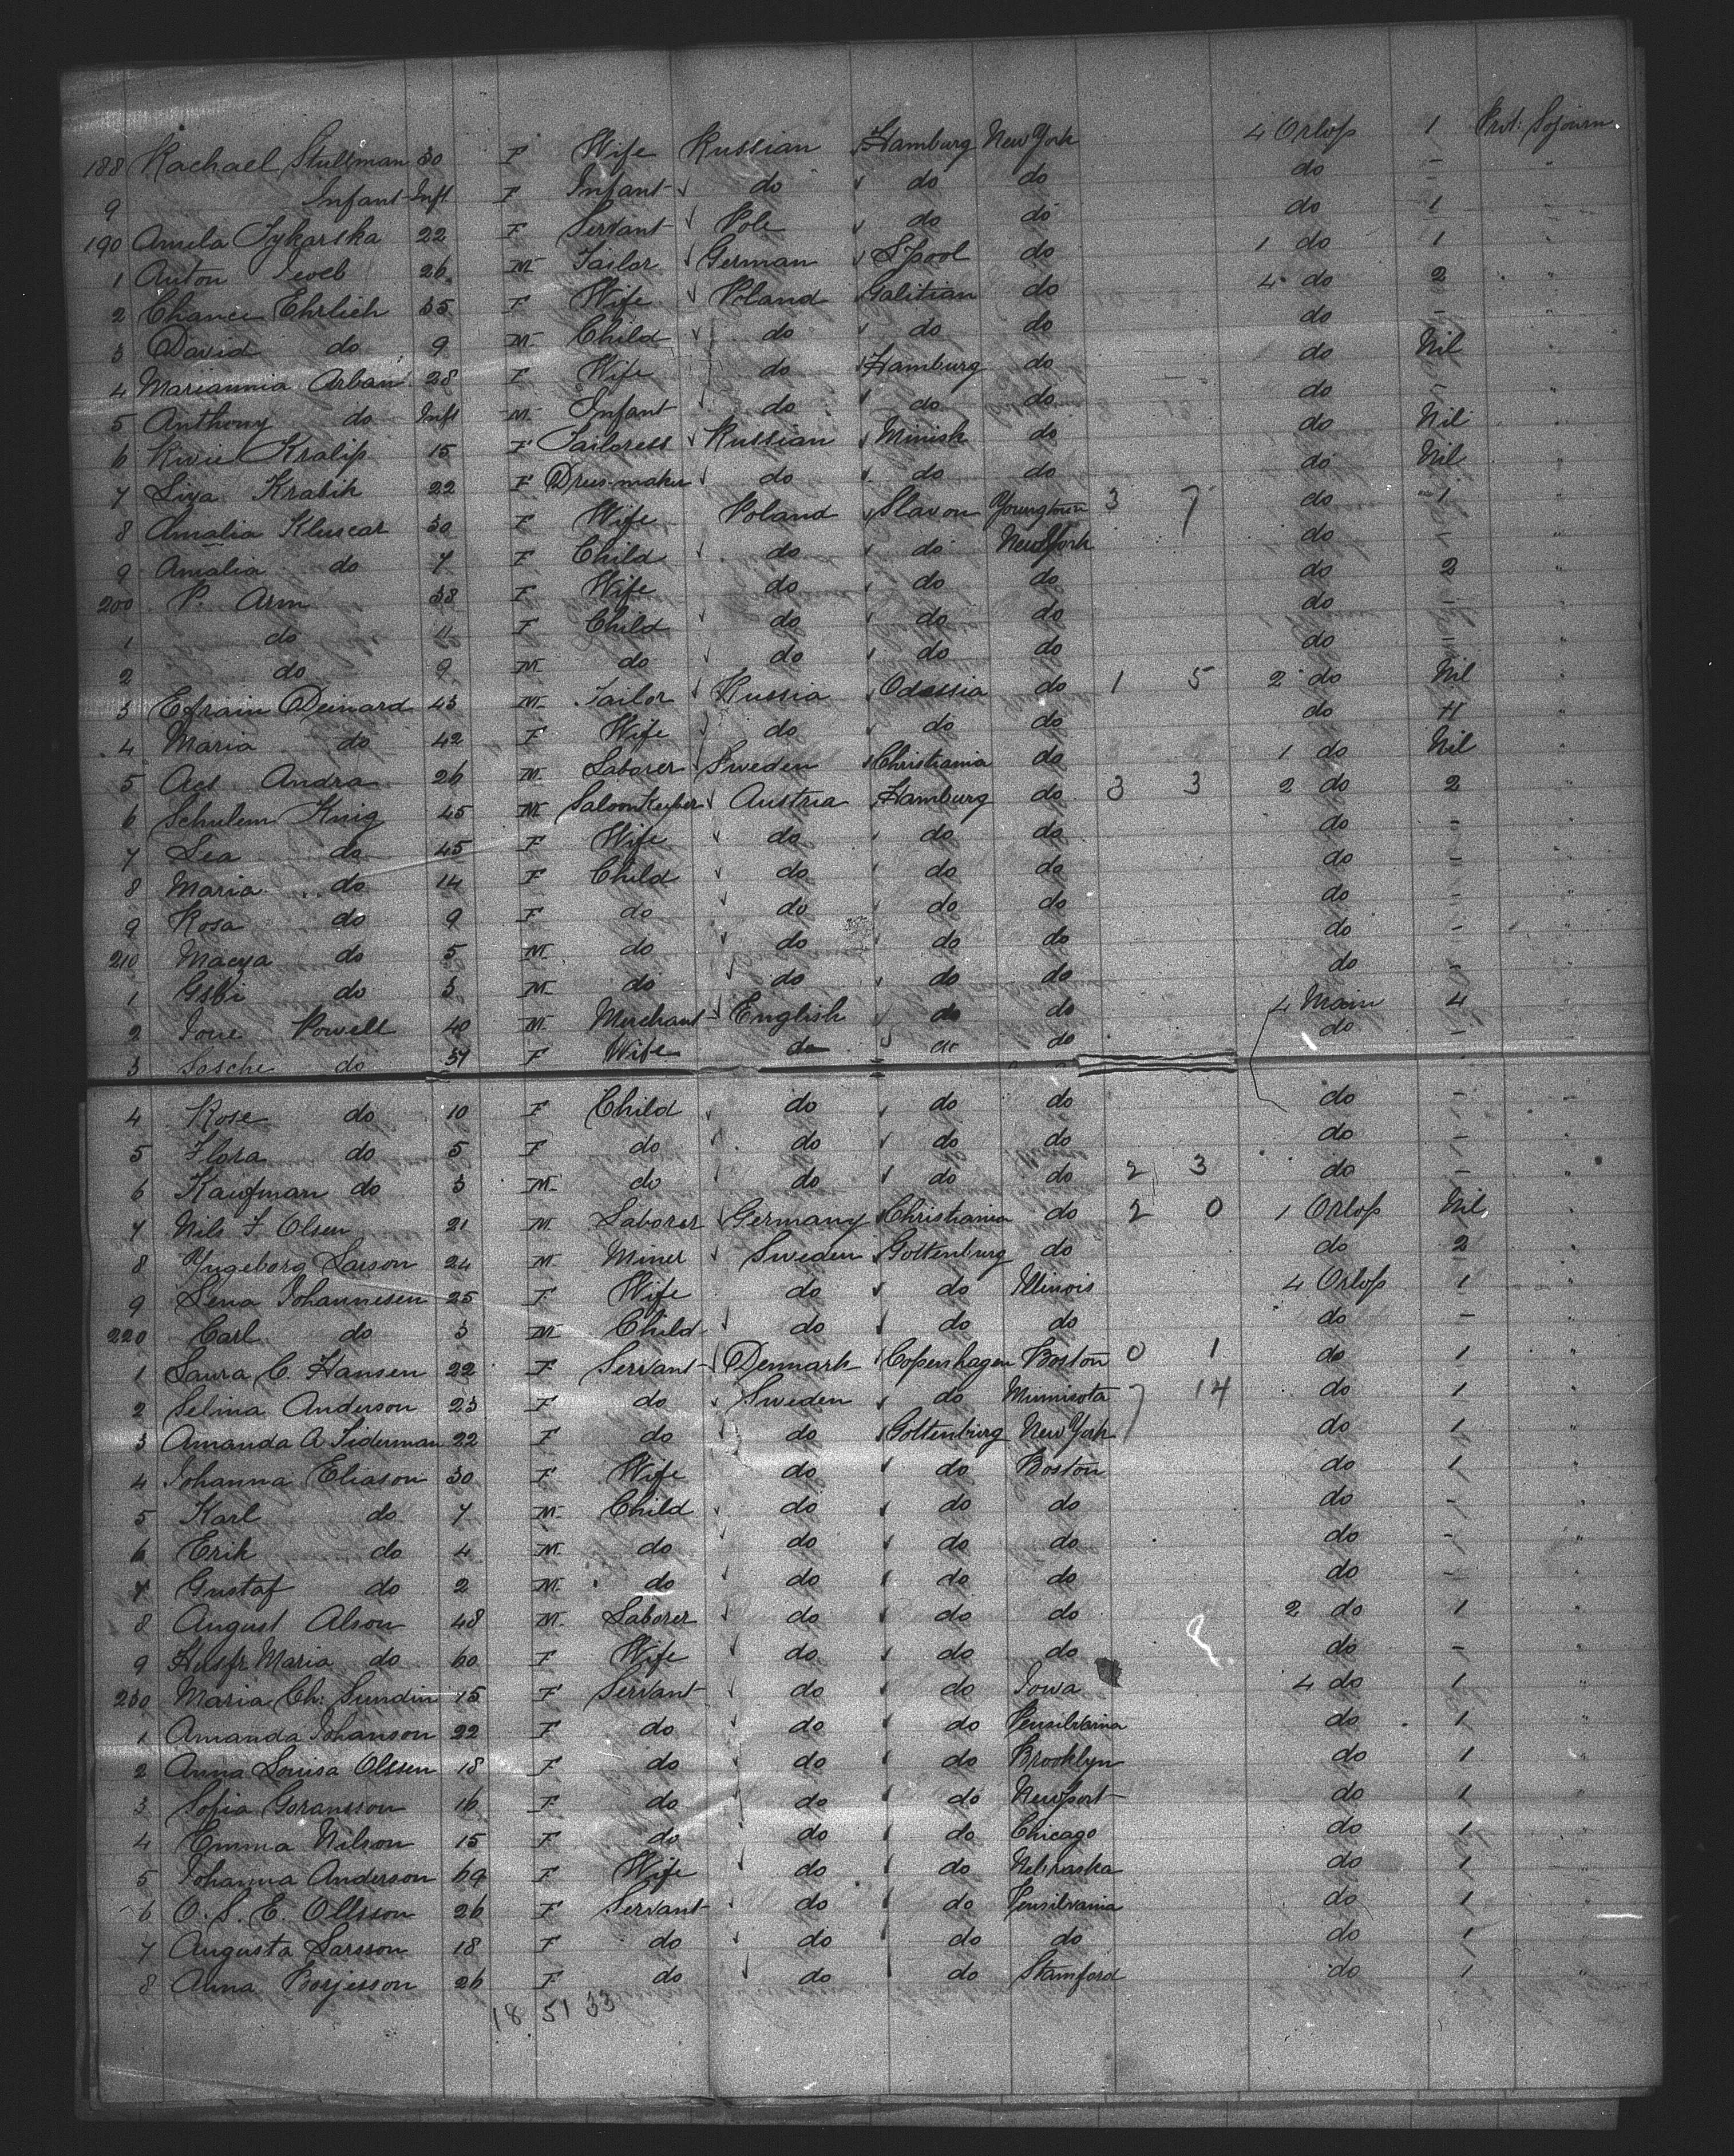 188 Rachael Stullman 30 F Wife Russian Hamburg New York 4 Orlop 1 Prot. Sojourn
9 Infant Inft F Infant do do do do - "
190 Amela Sykarska 22 F Servant Pole do do do 1 "
1 Anton 26 M Tailor German L'pool do 1 do 1 "
2 Chance Ehrlich 35 F Wife Poland Galitian do 4 do 2 "
3 David do 9 M Child do do do do - "
4 Mariannia Arban 28 F Wife do Hamburg do do Nil "
5 Anthony do Inft M Infant do do do do - "
6 Rivie Kralip 15 F Tailoress Russian Minish do do Nil "
7 Liya Krabik 22 F Dress-maker do do do do Nil "
8 Amalia Kluscar 30 F Wife Poland Slavon Youngtown 3 7 do 1 "
9 Amalia do 7 F Child do do New York do - "
200 P. Arm 38 F Wife do do do do 2 "
1 do 11 F Child do do do do - "
2 do 9 M do do do do do - "
3 Efraim Deinard 43 M Tailor Russia Odessia do 1 5 2 do Nil "
4 Maria do 42 F Wife do do do do 11 "
5 Aet Andra 26 M Laborer Sweden Christiania do 1 do Nil "
6 Schulem Knig 45 M SaloonKeeper Austria Hamburg do 3 3 2 do 2 "
7 Lea do 45 F Wife do do do do - "
8 Maria do 14 F Child do do do do - "
9 Rosa do 9 F do do do do do - "
210 Macya do 5 M do do do do do - "
1 Gsbi do 3 M do do do do do - "
2 Powell 40 M Merchant English do do 4 Main 4 "
3 Sosche do 37 F Wife do do do do -
4 Rose do 10 F Child do do do do - "
5 Flora do 5 F do do do do do - "
6 Kaufman do 3 M do do do do 2 3 do - "
7 Nils F Olsen 21 M Laborer Germany Christiania do 2 0 1 Orlop Nil "
8 Yngeborg Larson 24 M Miner Sweden Gottenburg do do 2 "
9 Lena Johannesen 25 F Wife do do Illinois 4 Orlop 1 "
220 Carl do 3 M Child do do do do - "
1 Laura C. Hansen 22 F Servant Denmark Copenhagen Boston 0 1 do 1 "
2 Selma Anderson 23 F do Sweden do Minnisota 7 14 do 1 "
3 Amanda A Siderman 22 F do do Gottenburg New York do 1 "
4 Johanna Eliason 30 F Wife do do Boston do 1 "
5 Karl do 7 M Child do do do do - "
6 Erik do 4 M do do do do do - "
7 Gustaf do 2 M do do do do do - "
8 August Alson 48 M Laborer do do do 2 do 1 "
9 Husfr Maria do 60 F Wife do do do do - "
230 Maria Ch: Sundin 15 F Servant do do Iowa 4 do 1 "
1 Amanda Johanson 22 F do do do Pensilvania do 1 "
2 Anna Louisa Olssen 18 F do do do Brooklyn do 1 "
3 Sofia Goransson 16 F do do do Newport do 1 "
4 Emma Nilson 15 F do do do Chicago do 1 "
5 Johanna Anderson 69 F Wife do do Nebraska do 1 "
6 O. S. E. Ollsson 26 F Servant do do Pensilvania do 1 "
7 Augusta Larsson 18 F do do do do do 1 "
8 Anna Borjesson 26 F do do do Stamford do 1 "
18 51 33